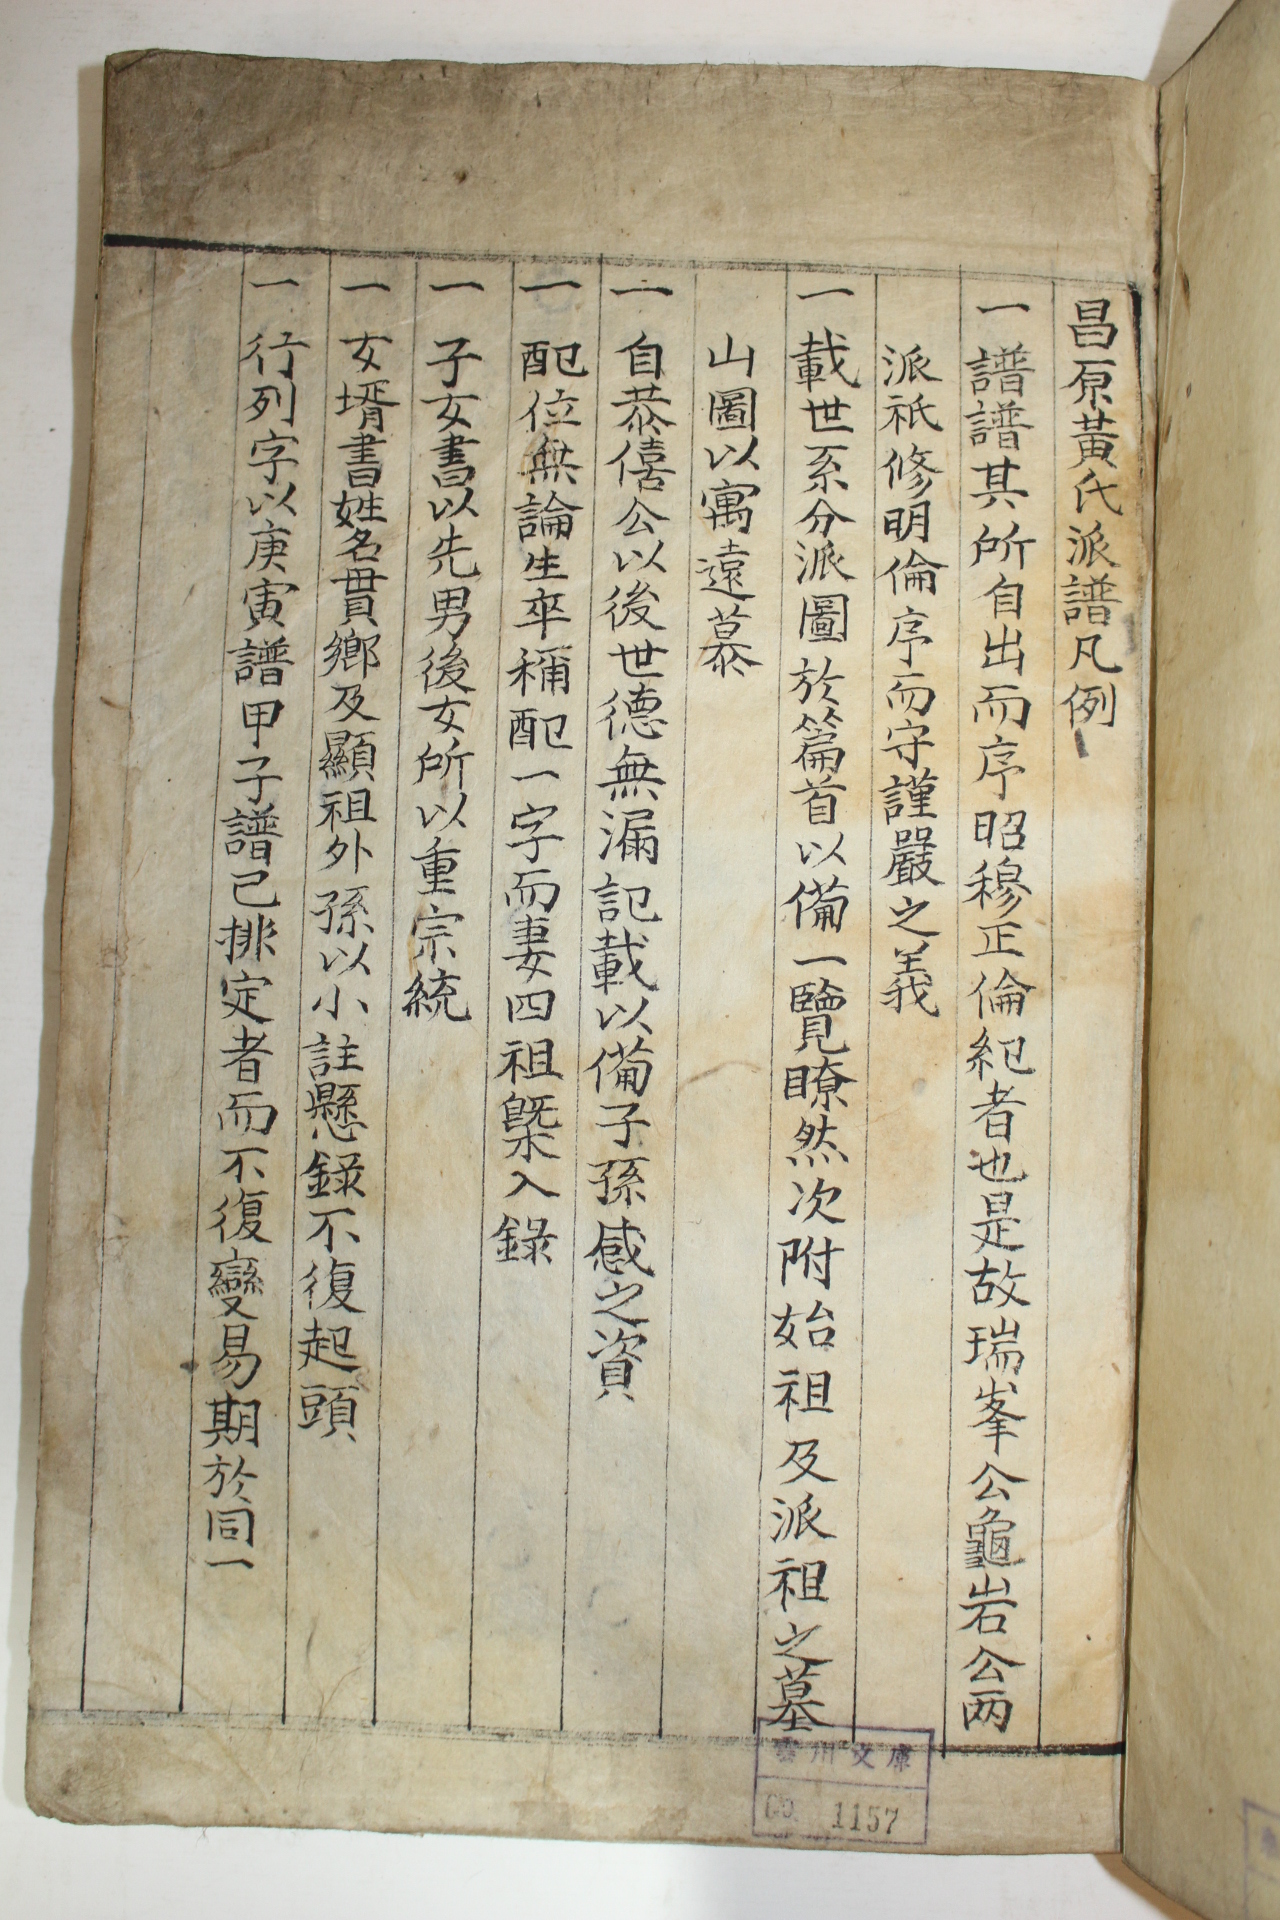 昌原黃氏派譜凡例
一 譜譜其所自出而序昭穆正倫紀者也是故瑞峯公龜岩公兩
派祇修明倫序而守謹嚴之義
一 載世系分派圖於篇首以備一覽瞭然次附始祖及派祖之墓
山圖以寓遠慕
一 自恭僖公以後世德無漏記載以備子孫感之資
一 配位無論生卒稱配一字而妻四祖槩入錄
一 子女書以先男後女所以重宗統
一 女壻書姓名貫鄉及顯祖外孫以小註懸錄不復起頭
一 行列字以庚寅譜甲子譜已排定者而不復變易期於同一
雲州文庫
1157